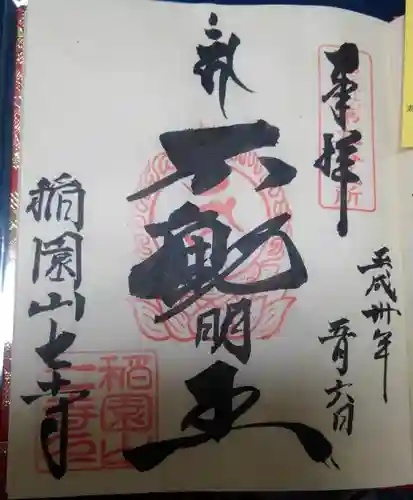 奉拝
平成卅年
五月六日
不動明王
稲園山七寺
稲園山
七寺印